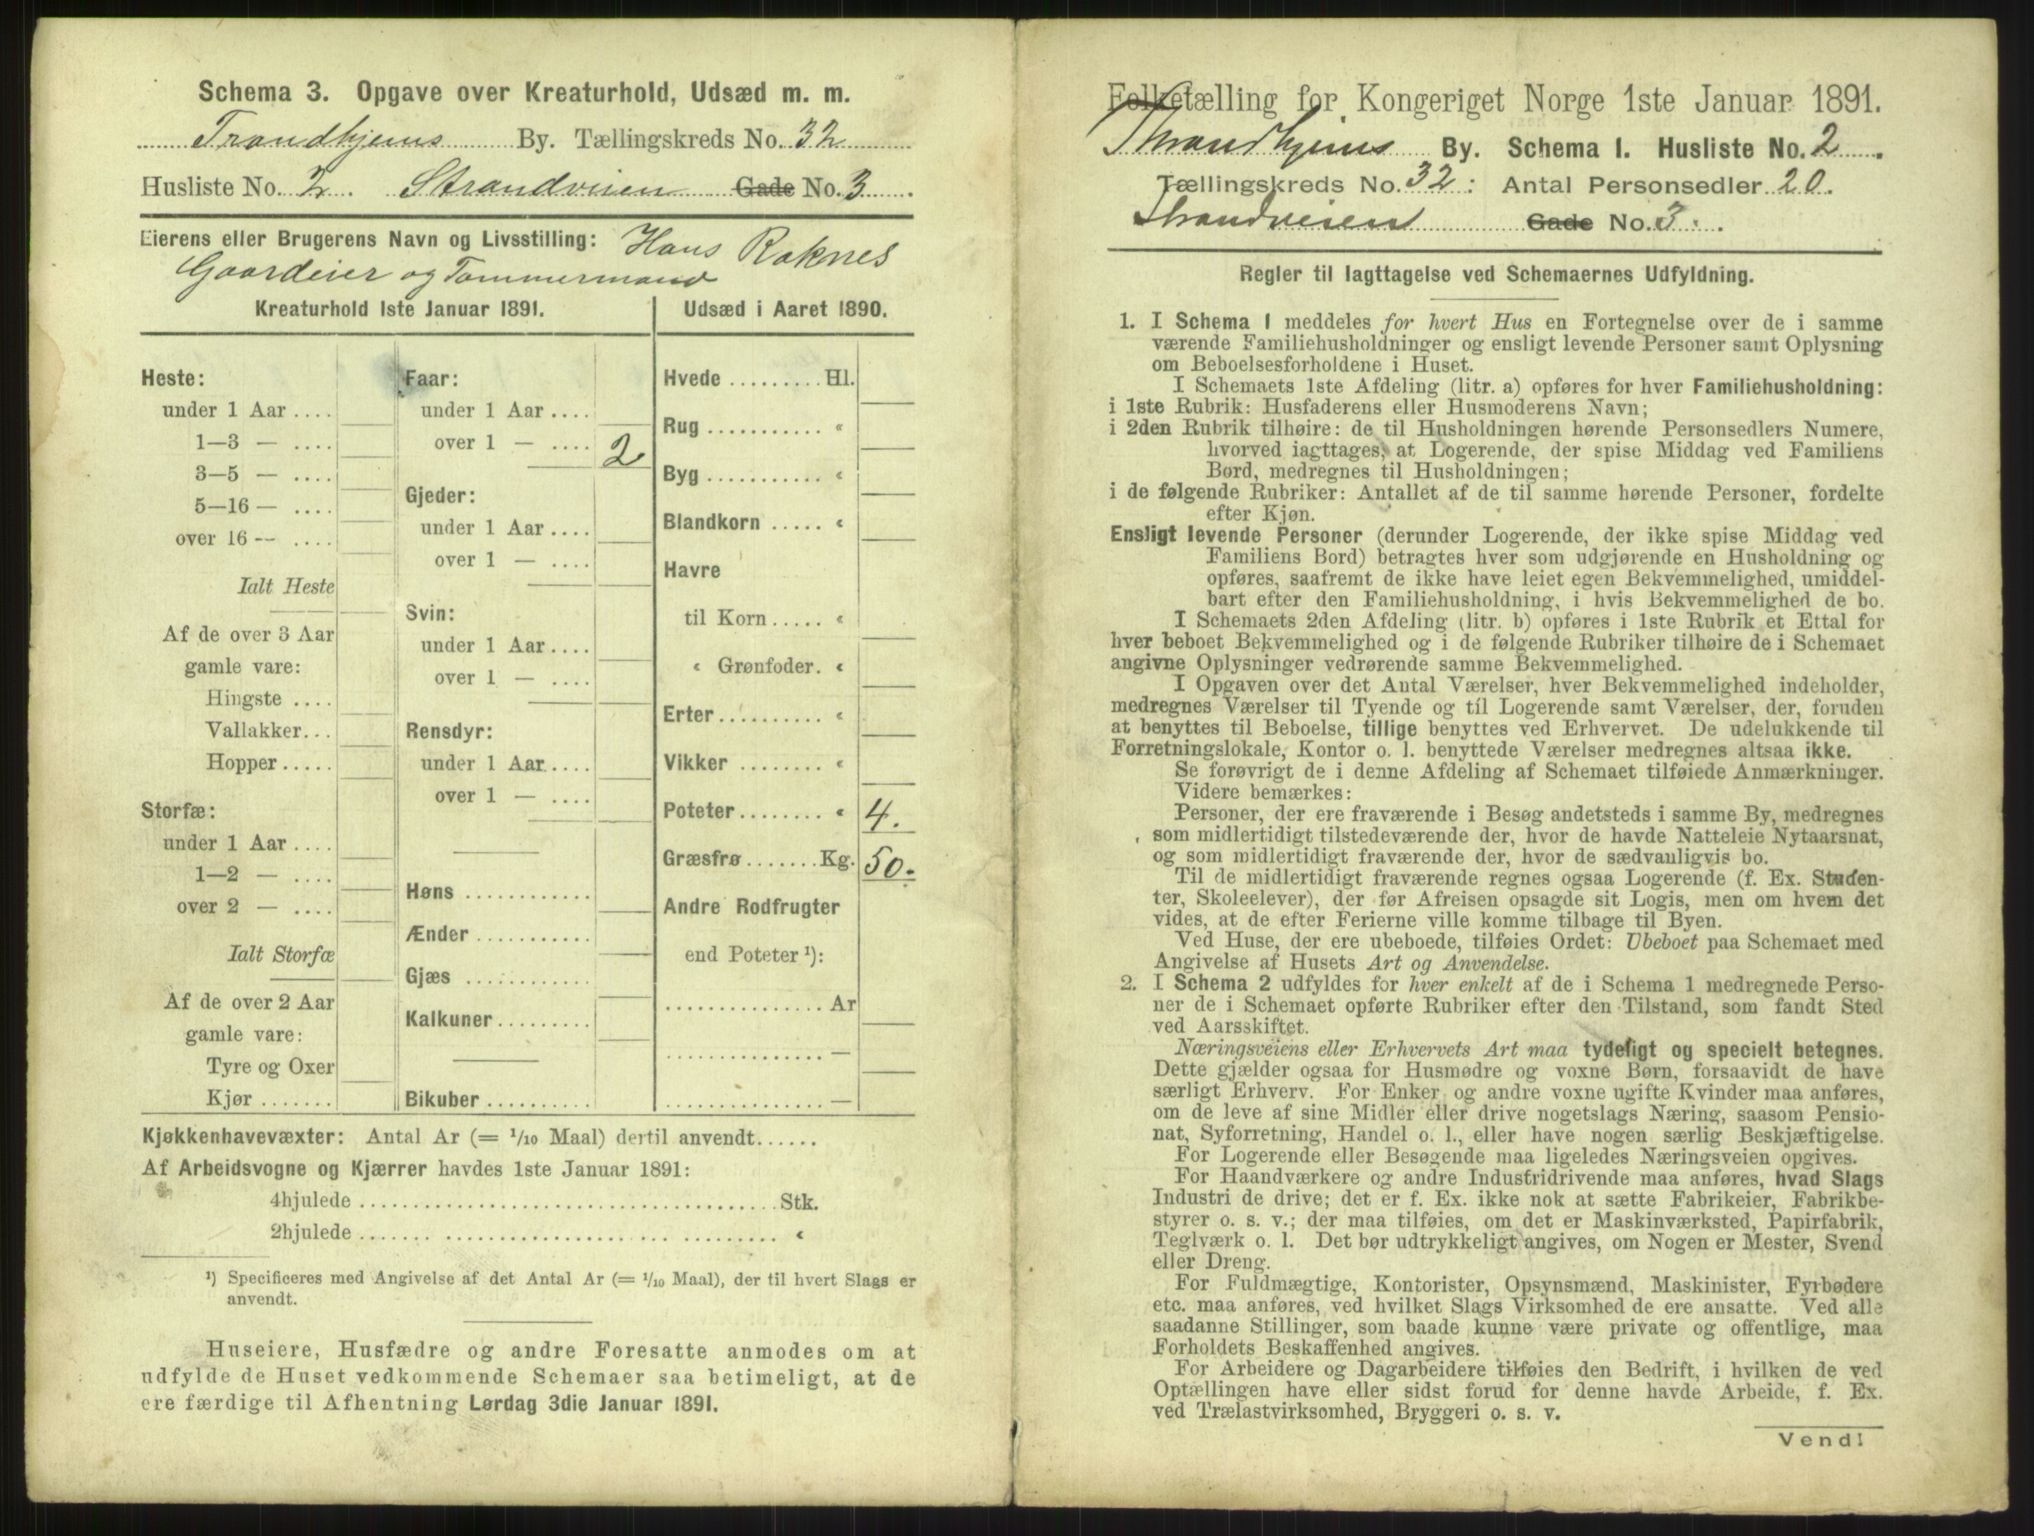 Schema 3. Opgave over Kreaturhold, Udsæd m. m.
Trondhjems By. Tællingskreds No. 32
Husliste No. 2. Strandveien Gade No. 3
Eierens eller Brugerens Navn og Livsstilling: Hans Raknes
Gaardeier og Tømmermand
Kreaturhold 1ste Januar 1891.
Heste:
under 1 Aar ....
1—3 — ....
3—5 — ....
5—16 — ....
over 16 -- ....
Ialt Heste
Af de over 3 Aar
gamle vare:
Hingste ....
Vallakker...
Hopper.....
Storfæ:
under 1 Aar ....
1—2 — ....
over 2 — ....
Ialt Storfæ
Af de over 2 Aar
gamle vare:
Tyre og Oxer
Kjør .......
Faar:
under 1 Aar ....
over 1 — .... 2
Gjeder:
under 1 Aar ....
over 1 — ....
Svin:
under 1 Aar ....
over 1 — ....
Rensdyr:
under 1 Aar ....
over 1 — ....
Høns ............
Ænder ...........
Gjæs ............
Kalkuner.........
Bikuber ..........
Udsæd i Aaret 1890.
Hvede ......... Hl.
Rug ........... "
Byg ........... "
Blandkorn ..... "
Havre
til Korn..... "
" Grønfoder. "
Erter.......... "
Vikker ........ "
Poteter........ " 4.
Græsfrø ....... Kg. 50.
Andre Rodfrugter
end Poteter ¹):
............... Ar
............... —
............... —
Kjøkkenhavevæxter: Antal Ar (= 1/10 Maal) dertil anvendt......
Af Arbeidsvogne og Kjærrer havdes 1ste Januar 1891:
4hjulede ...................................... Stk.
2hjulede ...................................... "
¹) Specificeres med Angivelse af det Antal Ar (= 1/10 Maal), der til hvert Slags er
anvendt.
Huseiere, Husfædre og andre Foresatte anmodes om at
udfylde de Huset vedkommende Schemaer saa betimeligt, at de
ere færdige til Afhentning Lørdag 3die Januar 1891.
Folketælling for Kongeriget Norge 1ste Januar 1891.
Throndhjems By. Schema 1. Husliste No. 2
Tællingskreds No. 32: Antal Personsedler 20.
Strandveien Gade No. 3.
Regler til Iagttagelse ved Schemaernes Udfyldning.
1. I Schema 1 meddeles for hvert Hus en Fortegnelse over de i samme
værende Familiehusholdninger og ensligt levende Personer samt Oplysning
om Beboelsesforholdene i Huset.
I Schemaets 1ste Afdeling (litr. a) opføres for hver Familiehusholdning:
i 1ste Rubrik: Husfaderens eller Husmoderens Navn;
i 2den Rubrik tilhøire: de til Husholdningen hørende Personsedlers Numere,
hvorved iagttages, at Logerende, der spise Middag ved Familiens
Bord, medregnes til Husholdningen;
i de følgende Rubriker: Antallet af de til samme hørende Personer, fordelte
efter Kjøn.
Ensligt levende Personer (derunder Logerende, der ikke spise Middag ved
Familiens Bord) betragtes hver som udgjørende en Husholdning og
opføres, saafremt de ikke have leiet egen Bekvemmelighed, umiddel-
bart efter den Familiehusholdning, i hvis Bekvemmelighed de bo.
I Schemaets 2den Afdeling (litr. b) opføres i 1ste Rubrik et Ettal for
hver beboet Bekvemmelighed og i de følgende Rubriker tilhøire de i Schemaet
angivne Oplysninger vedrørende samme Bekvemmelighed.
I Opgaven over det Antal Værelser, hver Bekvemmelighed indeholder,
medregnes Værelser til Tyende og til Logerende samt Værelser, der, foruden
at benyttes til Beboelse, tillige benyttes ved Erhvervet. De udelukkende til
Forretningslokale, Kontor o. l. benyttede Værelser medregnes altsaa ikke.
Se forøvrigt de i denne Afdeling af Schemaet tilføiede Anmærkninger.
Videre bemærkes:
Personer, der ere fraværende i Besøg andetsteds i samme By, medregnes
som midlertidigt tilstedeværende der, hvor de havde Natteleie Nytaarsnat,
og som midlertidigt fraværende der, hvor de sædvanligvis bo.
Til de midlertidigt fraværende regnes ogsaa Logerende (f. Ex. Studen-
ter, Skoleelever), der før Afreisen opsagde sit Logis, men om hvem det
vides, at de efter Ferierne ville komme tilbage til Byen.
Ved Huse, der ere ubeboede, tilføies Ordet: Ubeboet paa Schemaet med
Angivelse af Husets Art og Anvendelse.
2. I Schema 2 udfyldes for hver enkelt af de i Schema 1 medregnede Perso-
ner de i Schemaet opførte Rubriker efter den Tilstand, som fandt Sted
ved Aarsskiftet.
Næringsveiens eller Erhvervets Art maa tydeligt og specielt betegnes.
Dette gjælder ogsaa for Husmødre og voxne Børn, forsaavidt de have
særligt Erhverv. For Enker og andre voxne ugifte Kvinder maa anføres,
om de leve af sine Midler eller drive nogetslags Næring, saasom Pensio-
nat, Syforretning, Handel o. l., eller have nogen særlig Beskjæftigelse.
For Logerende eller Besøgende maa ligeledes Næringsveien opgives.
For Haandværkere og andre Industridrivende maa anføres, hvad Slags
Industri de drive; det er f. Ex. ikke nok at sætte Fabrikeier, Fabrikbe-
styrer o. s. v.; der maa tilføies, om det er Maskinværksted, Papirfabrik,
Teglværk o. l. Det bør udtrykkeligt angives, om Nogen er Mester, Svend
eller Dreng.
For Fuldmægtige, Kontorister, Opsynsmænd, Maskinister, Fyrbødere
etc. maa anføres, ved hvilket Slags Virksomhed de ere ansatte. Ved alle
saadanne Stillinger, som baade kunne være private og offentlige, maa
Forholdets Beskaffenhed angives.
For Arbeidere og Dagarbeidere tilføies den Bedrift, i hvilken de ved
Optællingen have eller sidst forud for denne havde Arbeide, f. Ex.
ved Trælastvirksomhed, Bryggeri o. s. v.
Vend!